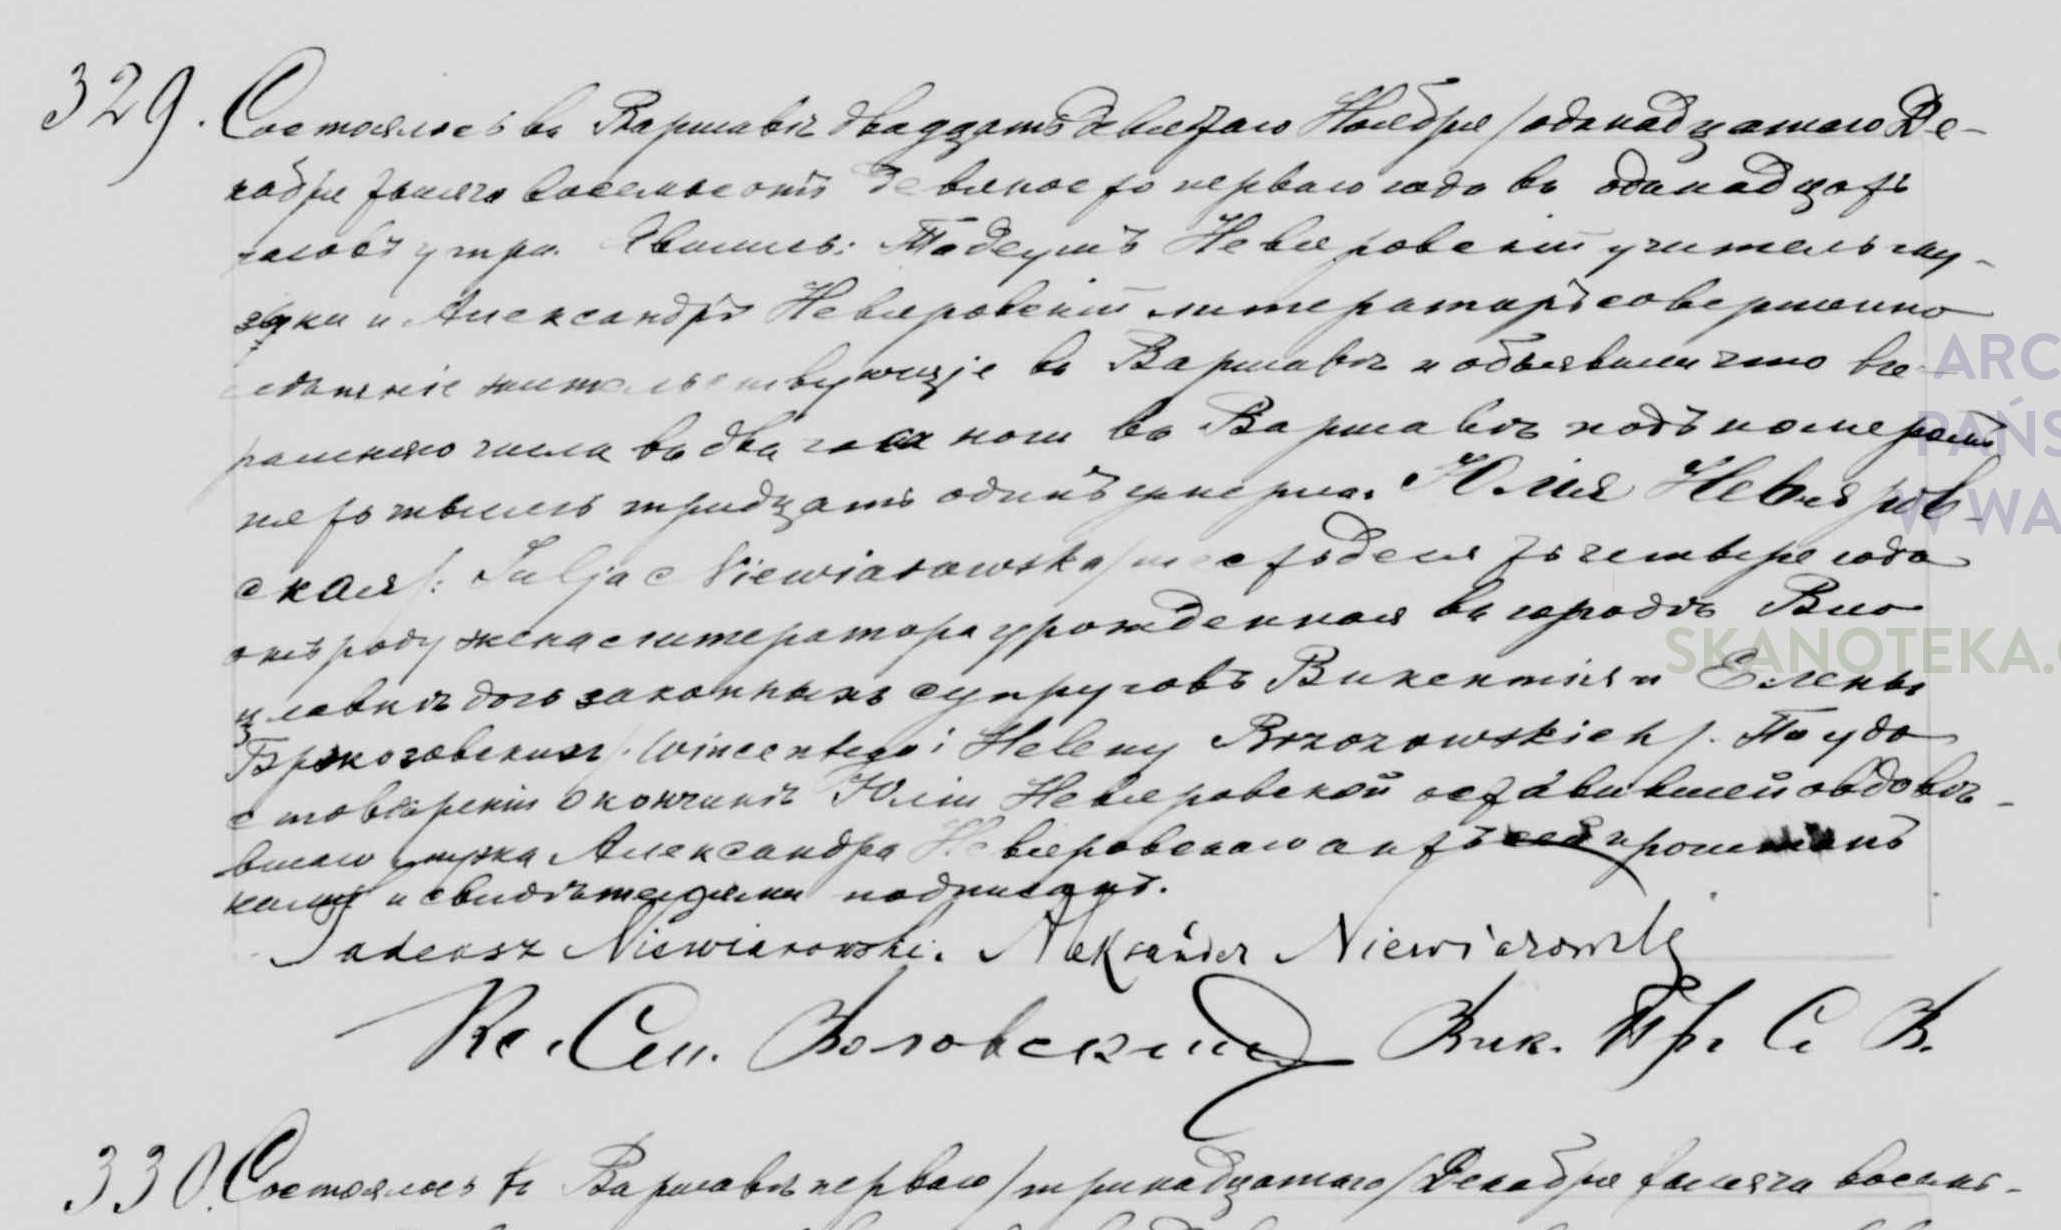 329. Состоялось въ Варшавѣ двадцать девятаго Ноября /одинадцатаго Де-
кабря тысяча восемьсотъ девяносто перваго года въ одинадцать
часовъ утра. Явились: Тадеушъ Невяровскій учитель му-
зыки и Александръ Невяровскій литераторъ совершенно
лѣтніе жительствующіе въ Варшавѣ и объявили что вче-
рашняго числа въ два часа ночи въ Варшавѣ подъ номеромъ
тридцать одинъ умерла Юлія Невяров-
ская /: Julja Niewiarowska / шестьдесятъ четыре года
отъ роду жена литератора урожденная въ городѣ Вло
цлавкѣ дочь законныхъ супруговъ Викентія и Елены
Бржозовскихъ /. Wincentego i Heleny Brzozowskich /. По удо
стовѣреніи о кончинѣ Юліи Невяровской оставившей овдовѣ-
вшаго мужа Александра Невяровскаго актъ сей прочитанъ
и свидѣтелями подписанъ.
Tadeusz Niewiarowski. Aleksander Niewiarowski
Кс. Сил. Воловскій Вик. Пр. С. В.
330. Состоялось въ Варшавѣ перваго /тринадцатаго/ Декабря тысяча восемь-
ARC
PAŃS
W WA
SKANOTEKA.